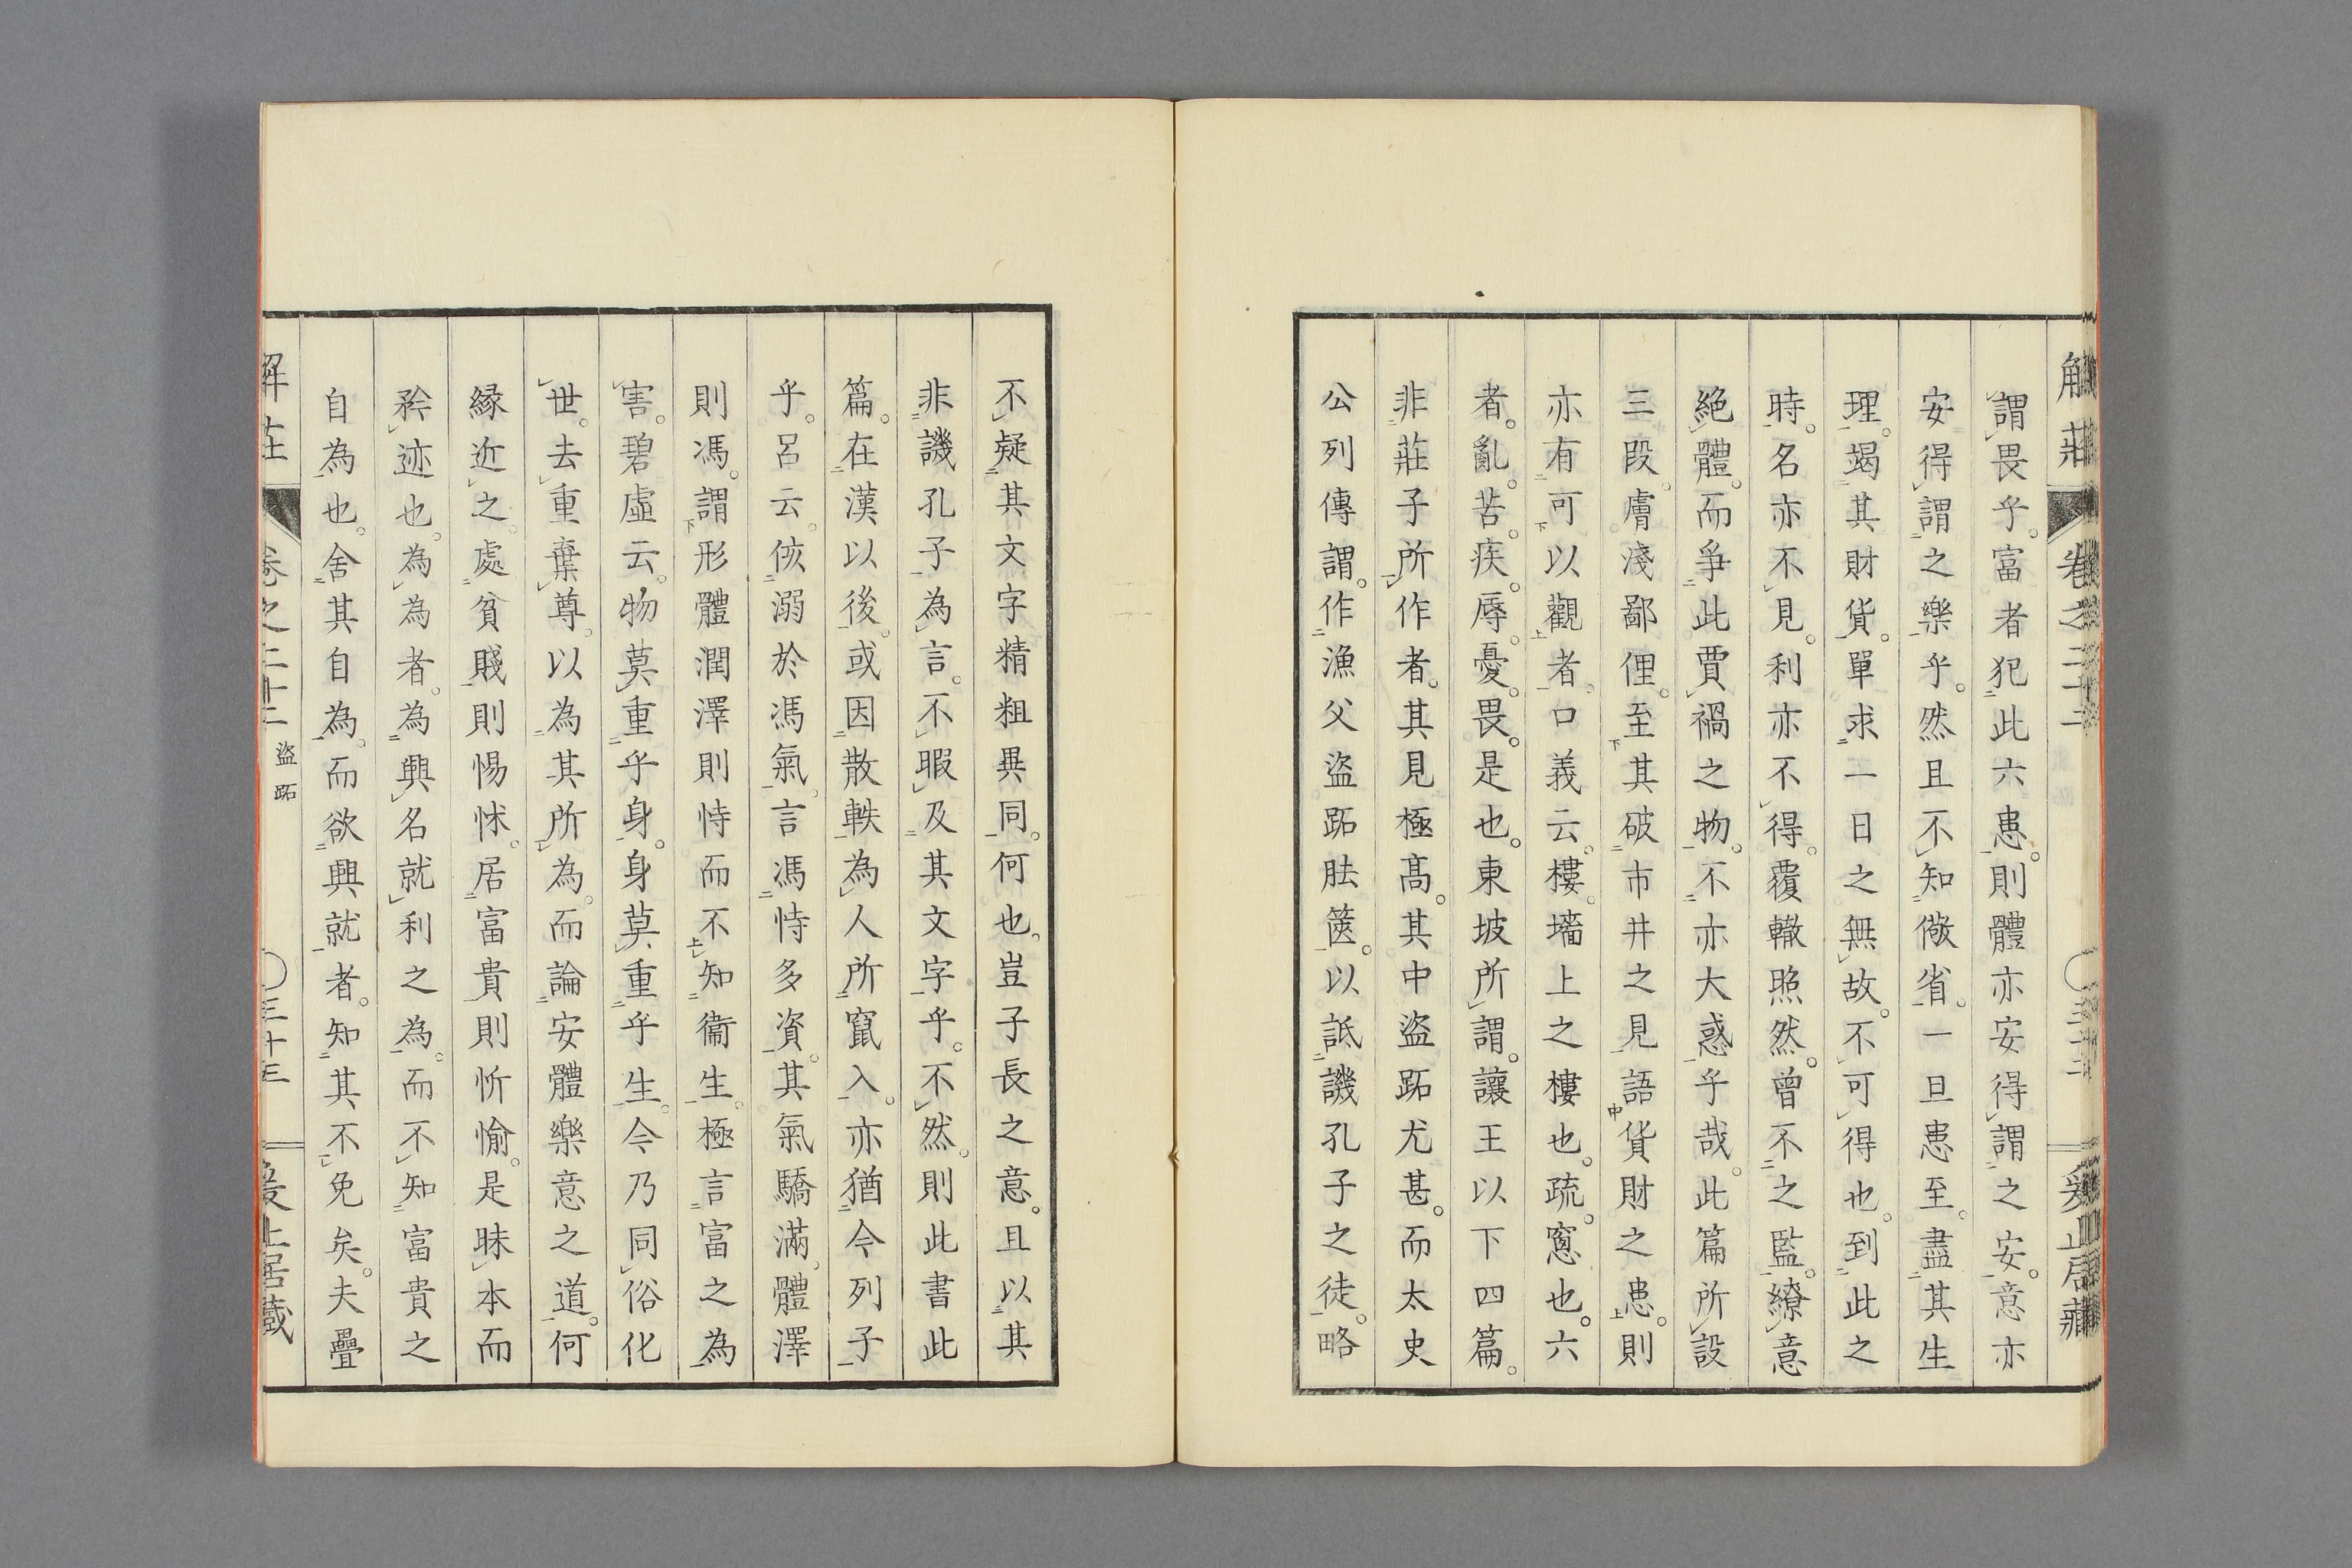 謂畏乎。富者犯此六患。則體亦安得謂之安。意亦
安得謂之樂乎。然且不知儆省。一旦患至。盡其生
理。竭其財貨。單求一日之無故。不可得也。到此之
時。名亦不見。利亦不得。覆轍照然。曾不之監。繚意
絕體。而爭此賈禍之物。不亦大惑乎哉。此篇所設
三段。膚淺鄙俚。至其破市井之見語貨財之患。則
亦有可以觀者。口義云。樓墻上之樓也。疏窻也。六
者。亂。苦。疾。辱。憂。畏。是也。東坡所謂。讓王以下四篇。
非莊子所作者。其見極高。其中盜跖尤甚。而太史
公列傳謂。作漁父盜跖胠篋。以詆譏孔子之徒。略
不疑其文字精粗異同。何也。豈子長之意。且以其
非譏孔子為言。不暇及其文字乎。不然。則此書此
篇。在漢以後。或因散軼為人所竄入。亦猶今列子
乎。呂云。侅溺於馮氣。言馮恃多資。其氣驕滿。體澤
則馮。謂形體潤澤則恃而不知衞生。極言富之為
害。碧虛云。物莫重乎身。身莫重乎生。今乃同俗化
世。去重棄尊。以為其所為。而論安體樂意之道。何
緣近之。處貧賤則惕怵。居富貴則忻愉。是昧本而
矜迹也。為為者。為興名就利之為。而不知富貴之
自為也。舍其自為。而欲興就者。知其不免矣。夫疊
解莊 卷之二十二 盜跖 〇三十三